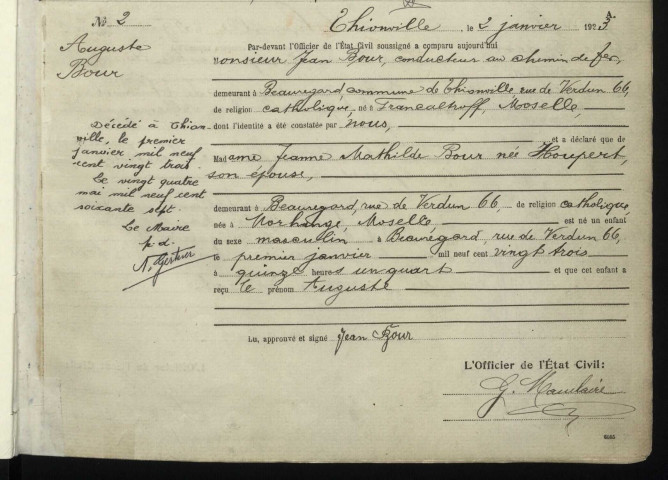 No 2
Thionville, le 2 janvier 1923
Auguste
Bour
Par-devant l'Officier de l'État Civil soussigné a comparu aujourd'hui
Monsieur Jean Bour, conducteur au chemin de fer,
demeurant à Beauregard, commune de Thionville, rue de Verdun 66,
de religion catholique, né à Francaltroff, Moselle,
dont l'identité a été constatée par nous,
et a déclaré que de
Madame Jeanne Mathilde Bour née Houpert,
son épouse,
demeurant à Beauregard, rue de Verdun 66, de religion catholique,
née à Morhange, Moselle est né un enfant
du sexe masculin à Beauregard, rue de Verdun 66,
le premier janvier mil neuf cent vingt trois
à quinze heures un quart et que cet enfant a
reçu le prénom Auguste
Lu, approuvé et signé Jean Bour
L'Officier de l'État Civil:
Décédé à Thion-
ville, le premier
janvier mil neuf
cent vingt trois.
Le vingt quatre
mai mil neuf cent
soixante sept.
Le Maire
p.d.